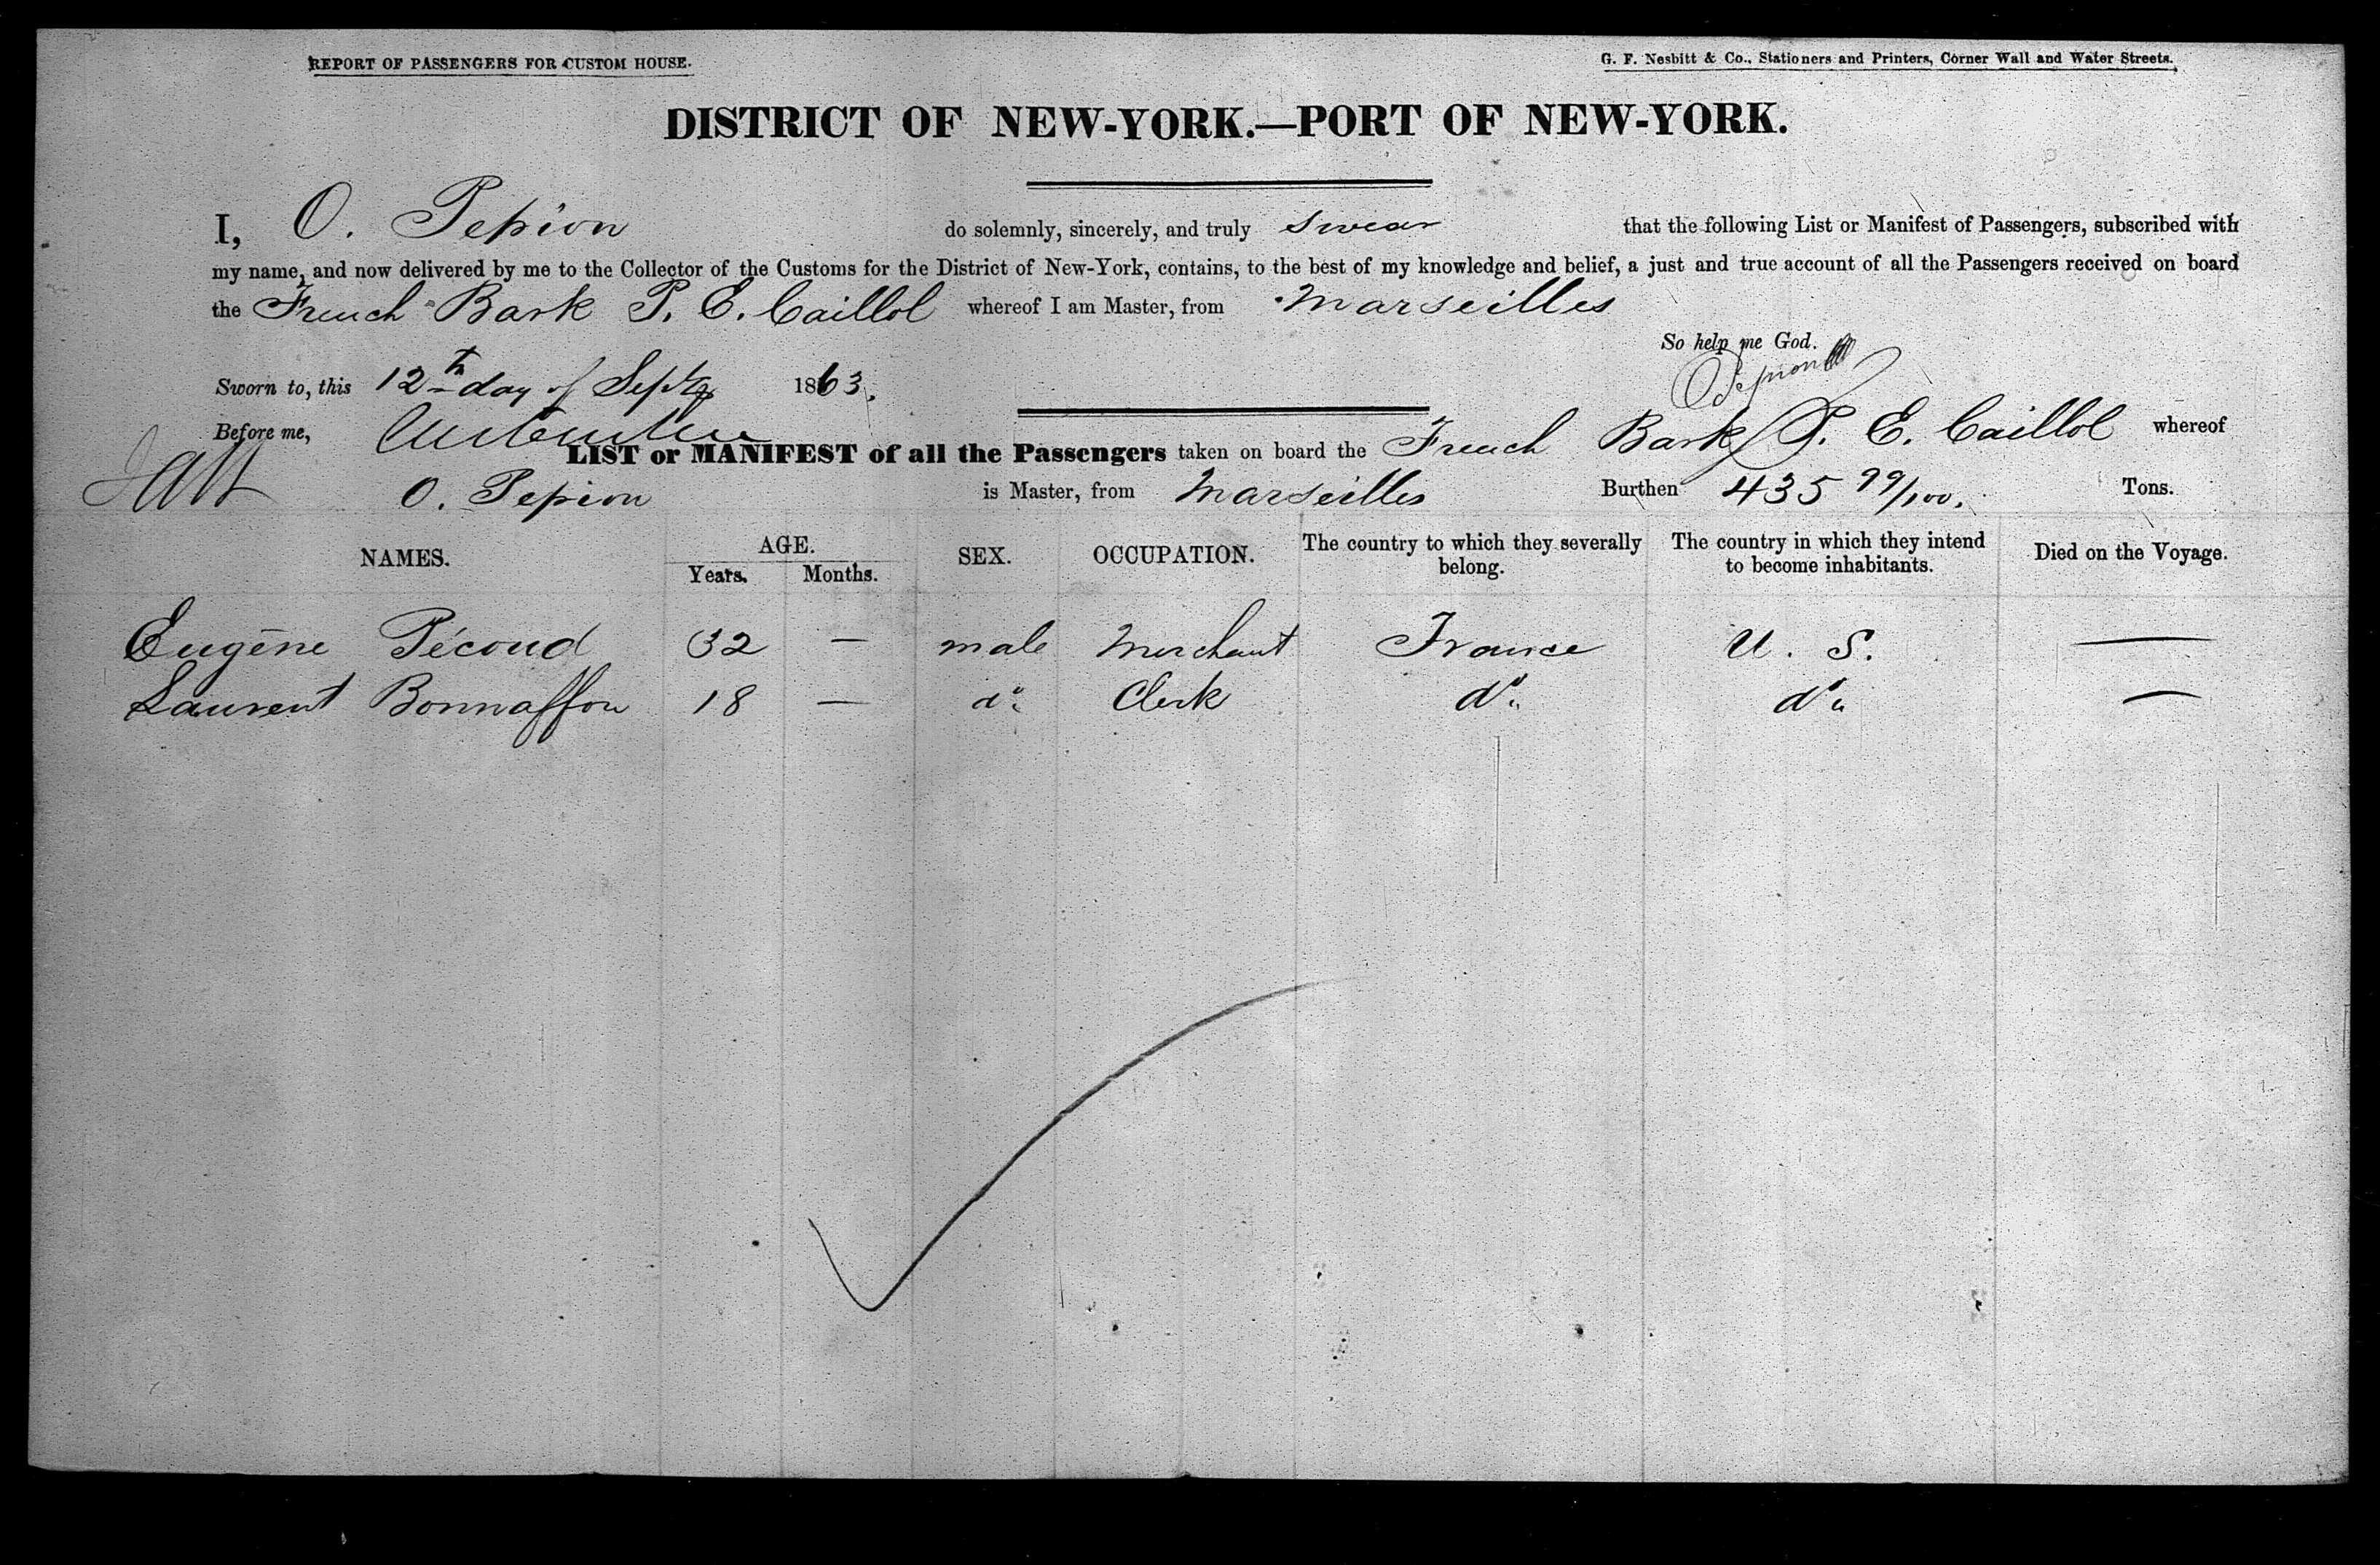 REPORT OF PASSENGERS FOR CUSTOM HOUSE.
G. F. Nesbitt & Co., Stationers and Printers, Corner Wall and Water Streets.
DISTRICT OF NEW-YORK.—PORT OF NEW-YORK.
I, O. Pepion do solemnly, sincerely, and truly swear that the following List or Manifest of Passengers, subscribed with
my name, and now delivered by me to the Collector of the Customs for the District of New-York, contains, to the best of my knowledge and belief, a just and true account of all the Passengers received on board
the French Bark P. E. Caillol whereof I am Master, from Marseilles
So help me God.
Sworn to, this 12th day of Septr 1863. O Pepion
Before me,
LIST or MANIFEST of all the Passengers taken on board the French Bark P. E. Caillol whereof
O. Pepion is Master, from Marseilles Burthen 435 99/100. Tons.
NAMES. AGE. Years. Months. SEX. OCCUPATION. The country to which they severally belong. The country in which they intend to become inhabitants. Died on the Voyage.
Eugène Pécoud 32 — male Merchant France U. S. —
Laurent Bonnaffou 18 — do Clerk do do —